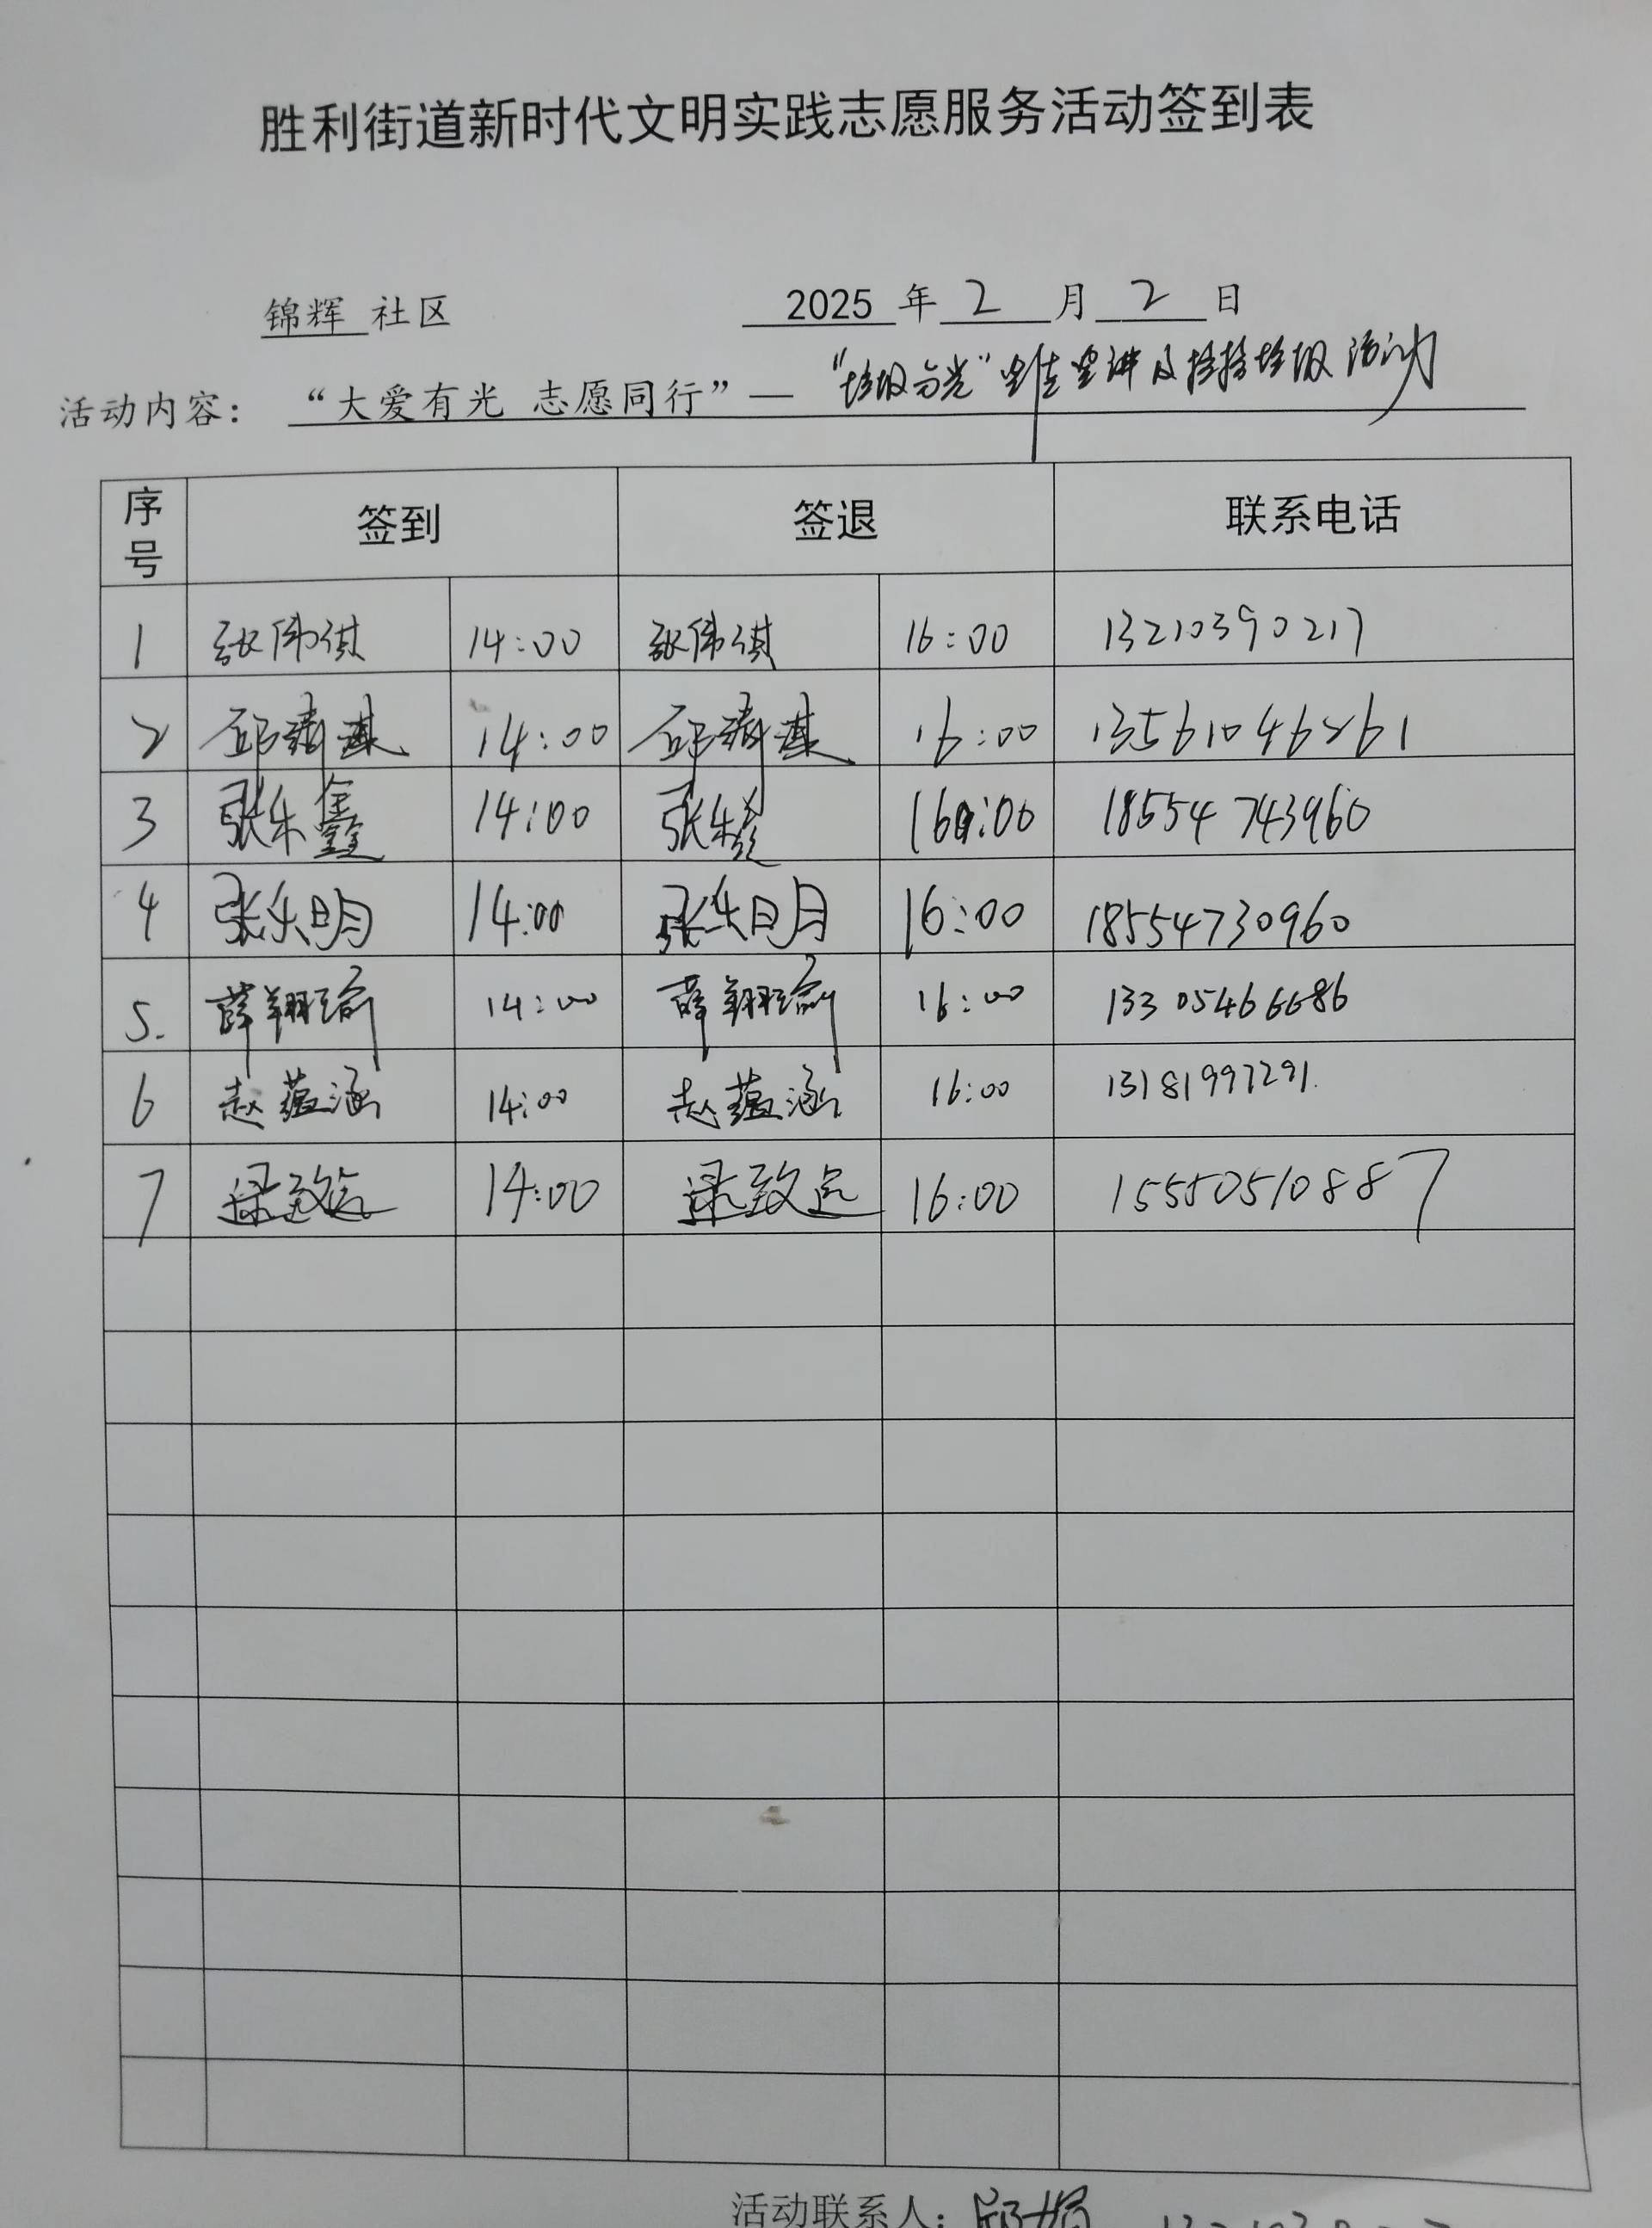 胜利街道新时代文明实践志愿服务活动签到表
锦辉 社区 2025 年 2 月 2 日
活动内容： “大爱有光 志愿同行”— “垃圾分类” 宣讲及捡拾垃圾活动
序号 签到 签退 联系电话
1 张伟淇 14:00 张伟淇 16:00 13210390217
2 邱 14:00 邱 16:00 13561046261
3 张乐鑫 14:00 张乐鑫 16:00 18554743960
4 张乐明 14:00 张乐明 16:00 18554730960
5. 薛翔瑜 14:00 薛翔瑜 16:00 13305466686
6 赵蕴涵 14:00 赵蕴涵 16:00 13181997291.
7 逯致远 14:00 逯致远 16:00 15550510887
活动联系人：邱娟